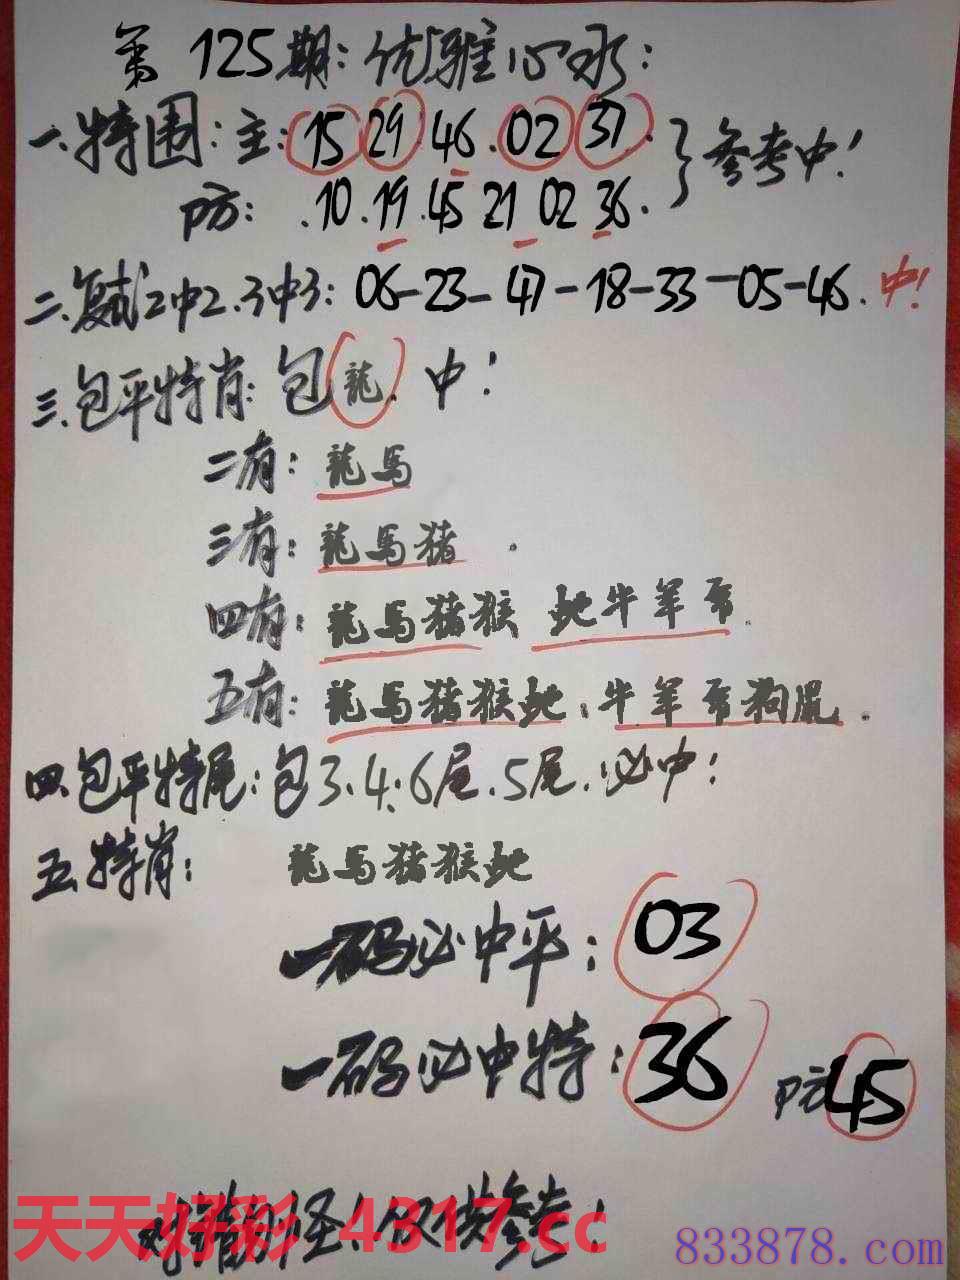 第125期:优雅心水:
一.特围:主:15 29 46.02 37.}参考中!
防:.10.19.45 21 02 36.
二.复试2中2.3中3:06-23-47-18-33-05-46.中!
三.包平特肖:包龍.中!
二有:龍馬
三有:龍馬猪.
四有:龍馬猪猴 蛇牛羊
五有:龍馬猪猴蛇.牛羊 狗鼠.
四.包平特尾:包3.4.6尾.5尾.必中!
五.特肖:龍馬猪猴蛇
一码必中平:03
一码必中特:36 防45
对错勿怪!仅供参考!
天天好彩 4317.cc
833878.com